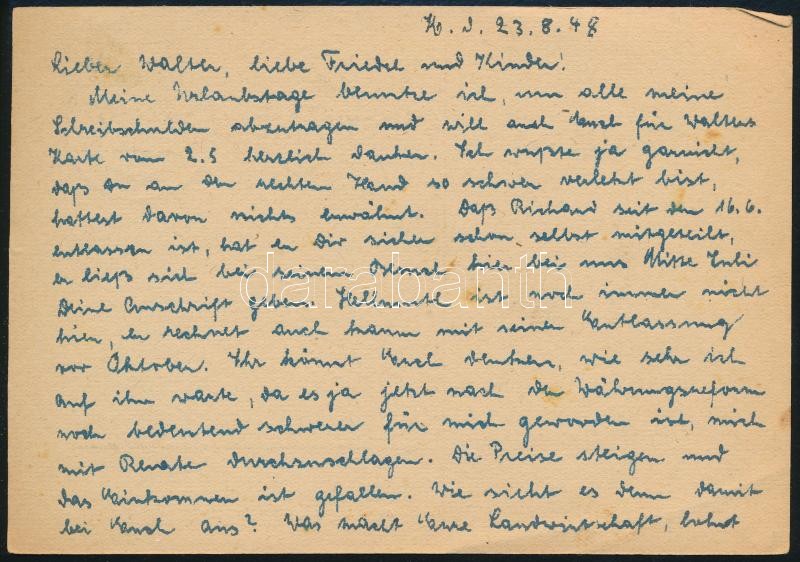 H. d. 23.8.48
Lieber Walter, liebe Friedel und Kinder!
Meine Urlaubstage benutze ich, um alle meine
Schreibschulden abzutragen und will auch Euch für Walters
Karte vom 2.5 herzlich danken. Ich wußte ja garnicht,
daß Du an der rechten Hand so schwer verletzt bist,
hattest davon nichts erwähnt. Daß Richard seit dem 16.6.
entlassen ist, hat er Dir sicher schon selbst mitgeteilt,
er ließ sich bei seinem Besuch hier bei uns Mitte Juli
Deine Anschrift geben. Hellmuth ist noch immer nicht
hier, er rechnet auch kaum mit seiner Entlassung
vor Oktober. Ihr könnt Euch denken, wie sehr ich
auf ihn warte, da es ja jetzt nach der Währungsreform
noch bedeutend schwerer für mich geworden ist, mich
mit Renate durchzuschlagen. Die Preise steigen und
das Einkommen ist gefallen. Wie sieht es denn damit
bei Euch aus? Was macht Eure Landwirtschaft, lohnt
darabanth